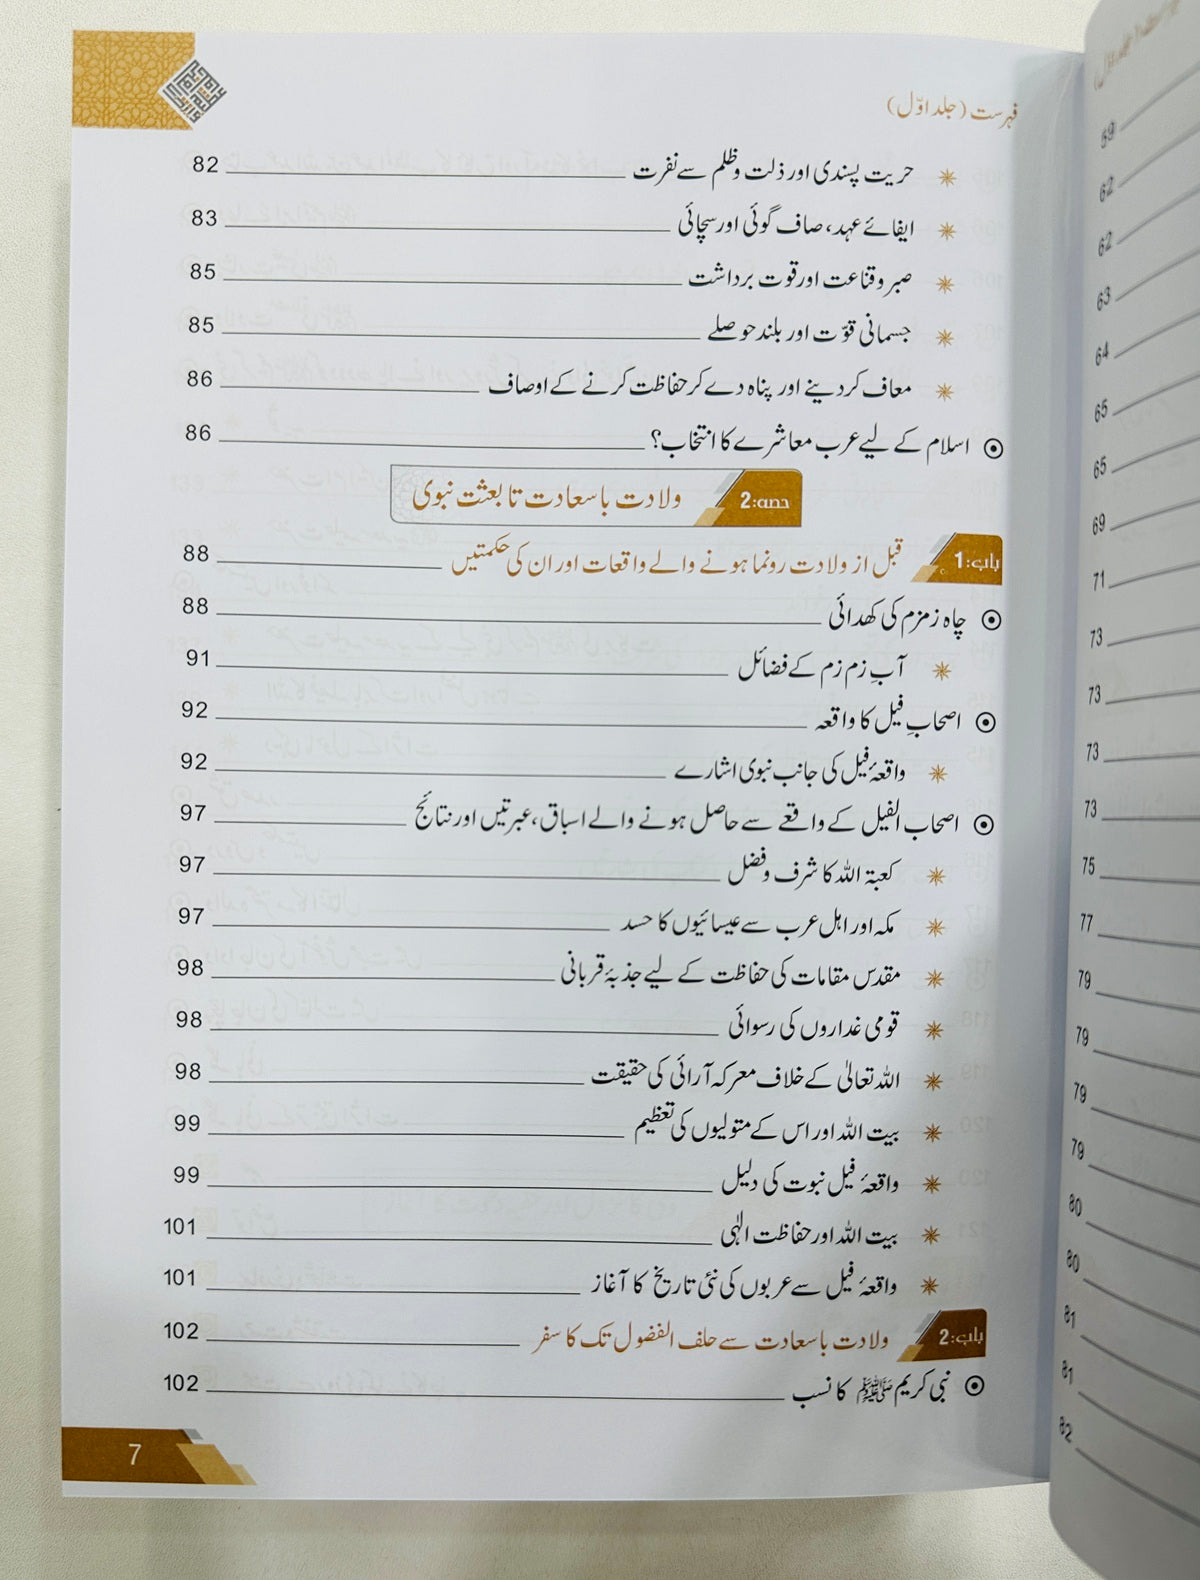 فہرست (جلد اوّل)
حریت پسندی اور ذلت و ظلم سے نفرت 82
ایفائے عہد، صاف گوئی اور سچائی 83
صبر و قناعت اور قوت برداشت 85
جسمانی قوّت اور بلند حوصلے 85
معاف کر دینے اور پناہ دے کر حفاظت کرنے کے اوصاف 86
اسلام کے لیے عرب معاشرے کا انتخاب؟ 86
حصہ:2 ولادت باسعادت تا بعثت نبوی
باب:1 قبل از ولادت رونما ہونے والے واقعات اور ان کی حکمتیں 88
چاہ زمزم کی کھدائی 88
آبِ زم زم کے فضائل 91
اصحابِ فیل کا واقعہ 92
واقعۂ فیل کی جانب نبوی اشارے 92
اصحاب الفیل کے واقعے سے حاصل ہونے والے اسباق، عبرتیں اور نتائج 97
کعبۃ اللہ کا شرف و فضل 97
مکہ اور اہل عرب سے عیسائیوں کا حسد 97
مقدس مقامات کی حفاظت کے لیے جذبۂ قربانی 98
قومی غداروں کی رسوائی 98
اللہ تعالیٰ کے خلاف معرکہ آرائی کی حقیقت 98
بیت اللہ اور اس کے متولیوں کی تعظیم 99
واقعۂ فیل نبوت کی دلیل 99
بیت اللہ اور حفاظت الٰہی 101
واقعۂ فیل سے عربوں کی نئی تاریخ کا آغاز 101
باب:2 ولادت باسعادت سے حلف الفضول تک کا سفر 102
نبی کریم ﷺ کا نسب 102
7
59
62
62
63
64
65
65
69
71
73
73
73
73
75
77
79
79
79
79
80
80
81
81
82